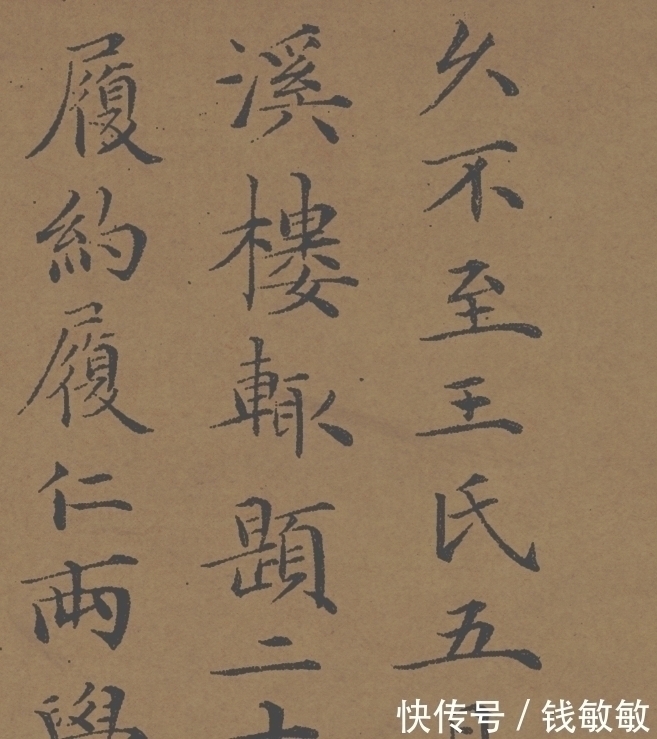 久不至王氏五
溪樓輙題二十
履約履仁兩學
快传号 / 钱敏敏